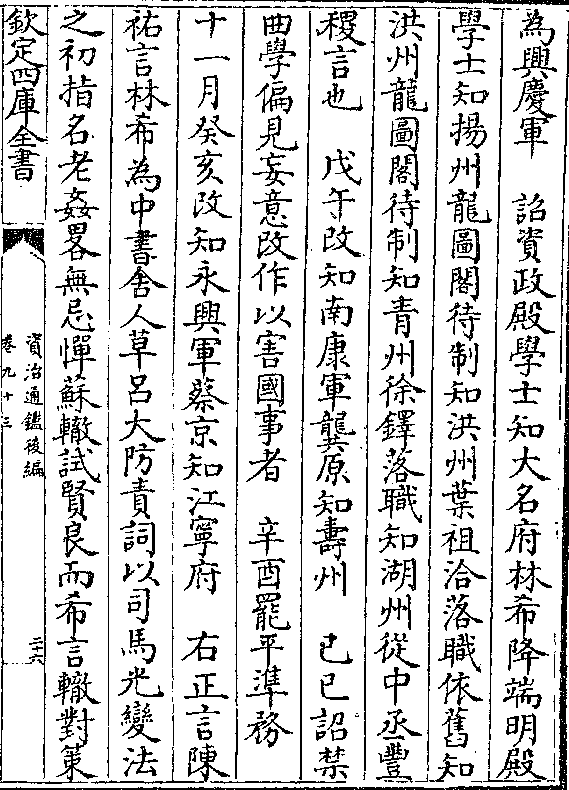 為興慶軍　詔資政殿學士知大名府林希降端明殿
學士知揚州龍圖閣待制知洪州葉祖洽落職依舊知
洪州龍圖閣待制知青州徐鐸落職知湖州從中丞豐
稷言也　戊午改知南康軍龔原知壽州　己巳詔禁
曲學偏見妄意改作以害國事者　辛酉罷平準務
十一月癸亥改知永興軍蔡京知江寧府　右正言陳
祐言林希為中書舍人草呂大防責詞以司馬光變法
之初指名老姦畧無忌憚蘇轍試賢良而希言轍對策
欽定四庫全書
資治通鑑後編
卷九十三
三十六